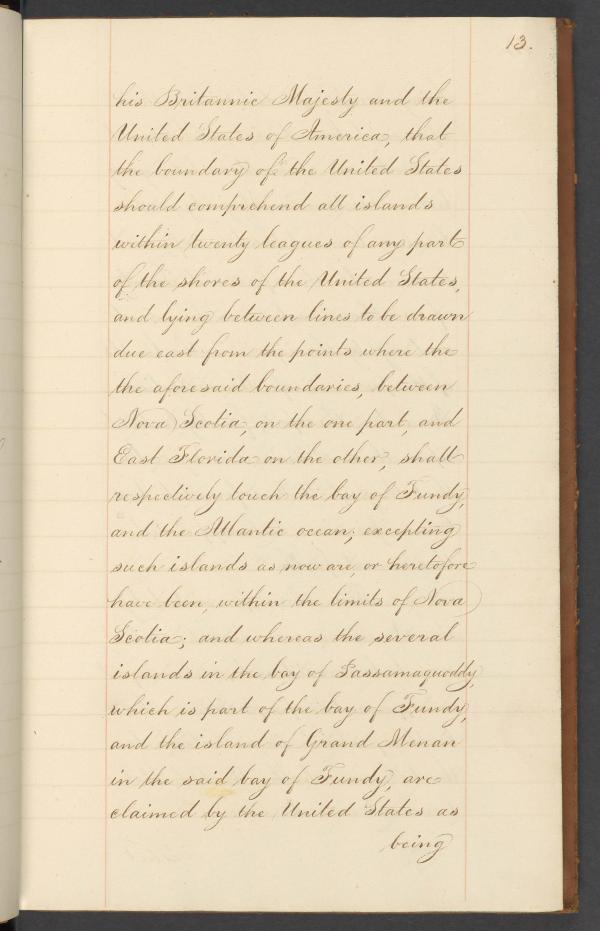 13.
his Britannic Majesty and the
United States of America, that
the boundary of the United States
should comprehend all islands
within twenty leagues of any part
of the shores of the United States,
and lying between lines to be drawn
due east from the points where the
the aforesaid boundaries, between
Nova Scotia, on the one part, and
East Florida on the other, shall
respectively touch the bay of Fundy,
and the Atlantic ocean; excepting
such islands as now are, or heretofore
have been, within the limits of Nova
Scotia; and whereas the several
islands in the bay of Passamaquoddy,
which is part of the bay of Fundy,
and the island of Grand Menan
in the said bay of Fundy, are
claimed by the United States as
being